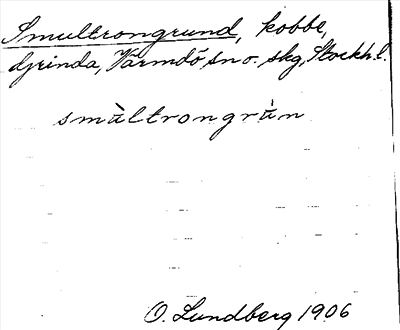 Smultrongrund, kobbe,
djrinda, Värmdö sn o. skg, Stockh. l.
smàltrongrùn
O. Lundberg 1906